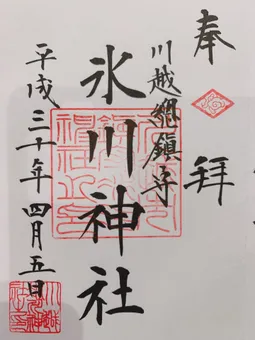 奉拜
川越總鎮守
氷川神社
平成三十年四月五日